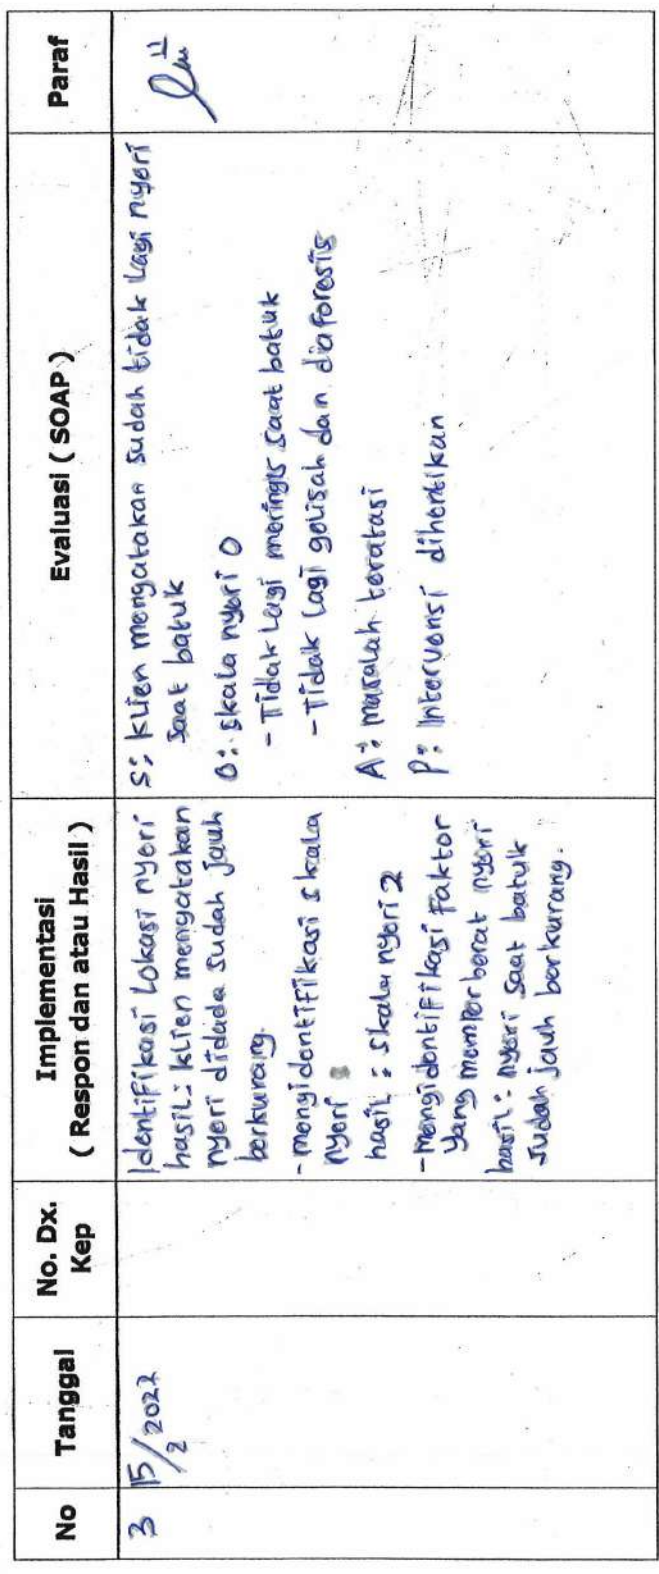 No
Tanggal
No. Dx.
Kep
Implementasi
( Respon dan atau Hasil )
Evaluasi ( SOAP )
Paraf
3
15/2 2022
Identifikasi Lokasi nyeri
hasil: klien mengatakan
nyeri didada sudah jauh
berkurang.
- mengidentifikasi skala
nyeri
hasil : skala nyeri 2
- mengidentifikasi Faktor
yang memperberat nyeri
hasil: nyeri saat batuk
sudah jauh berkurang.
S: klien mengatakan sudah tidak lagi nyeri
saat batuk
O: skala nyeri 0
- Tidak lagi meringis saat batuk
- Tidak lagi gelisah dan diaforesis
A: masalah teratasi
P: Intervensi dihentikan